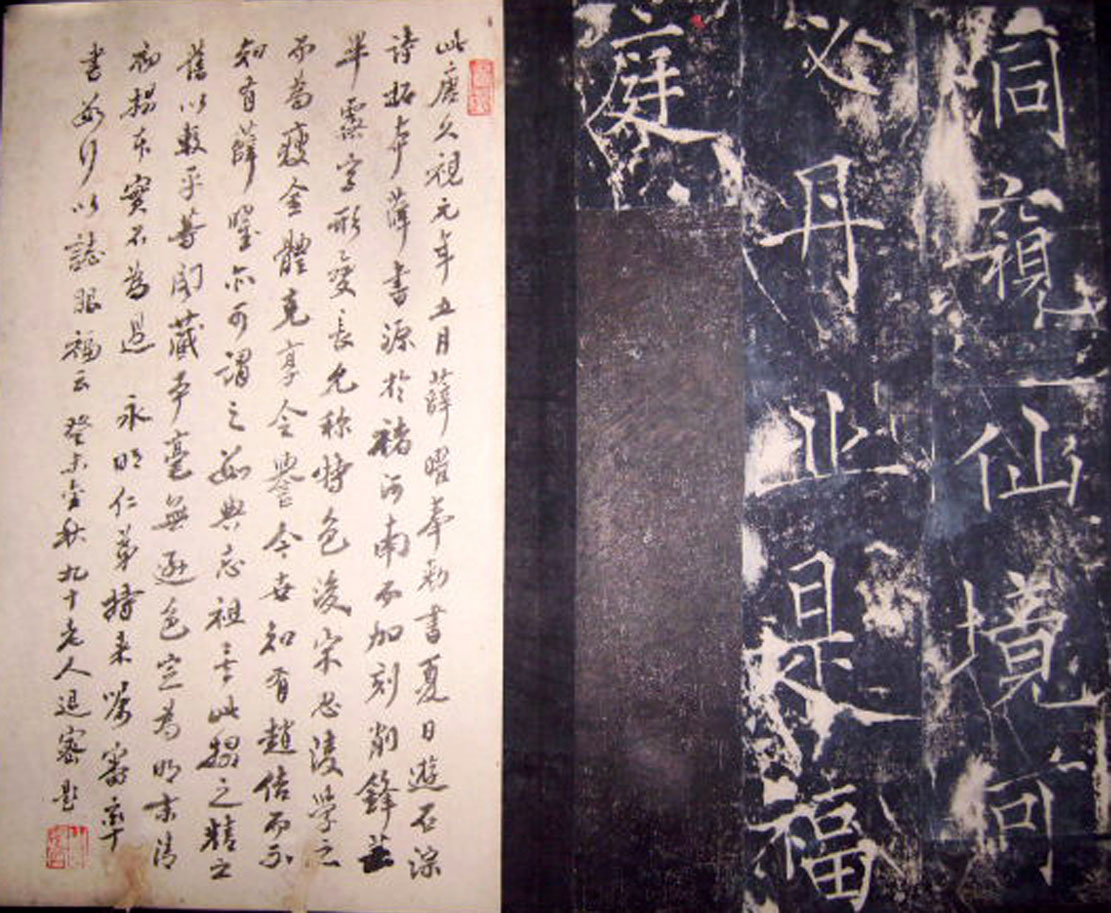 洞窺仙境何
必丹丘是福
庭
此唐久視元年五月薛曜奉敕書夏日遊石淙
詩拓本薛書源於褚河南而加刻削鋒芒
畢露字形變長允稱特色後宋思陵學之
而為瘦金體克享令譽今世知有趙佶而不
知有薛曜亦可謂之數典忘祖矣此搨之精之
舊以較平等閣藏本毫無遜色定為明末清
初搨本實不為過 永明仁弟持來囑審率
書數行以誌眼福云 癸未秋九十老人退密題